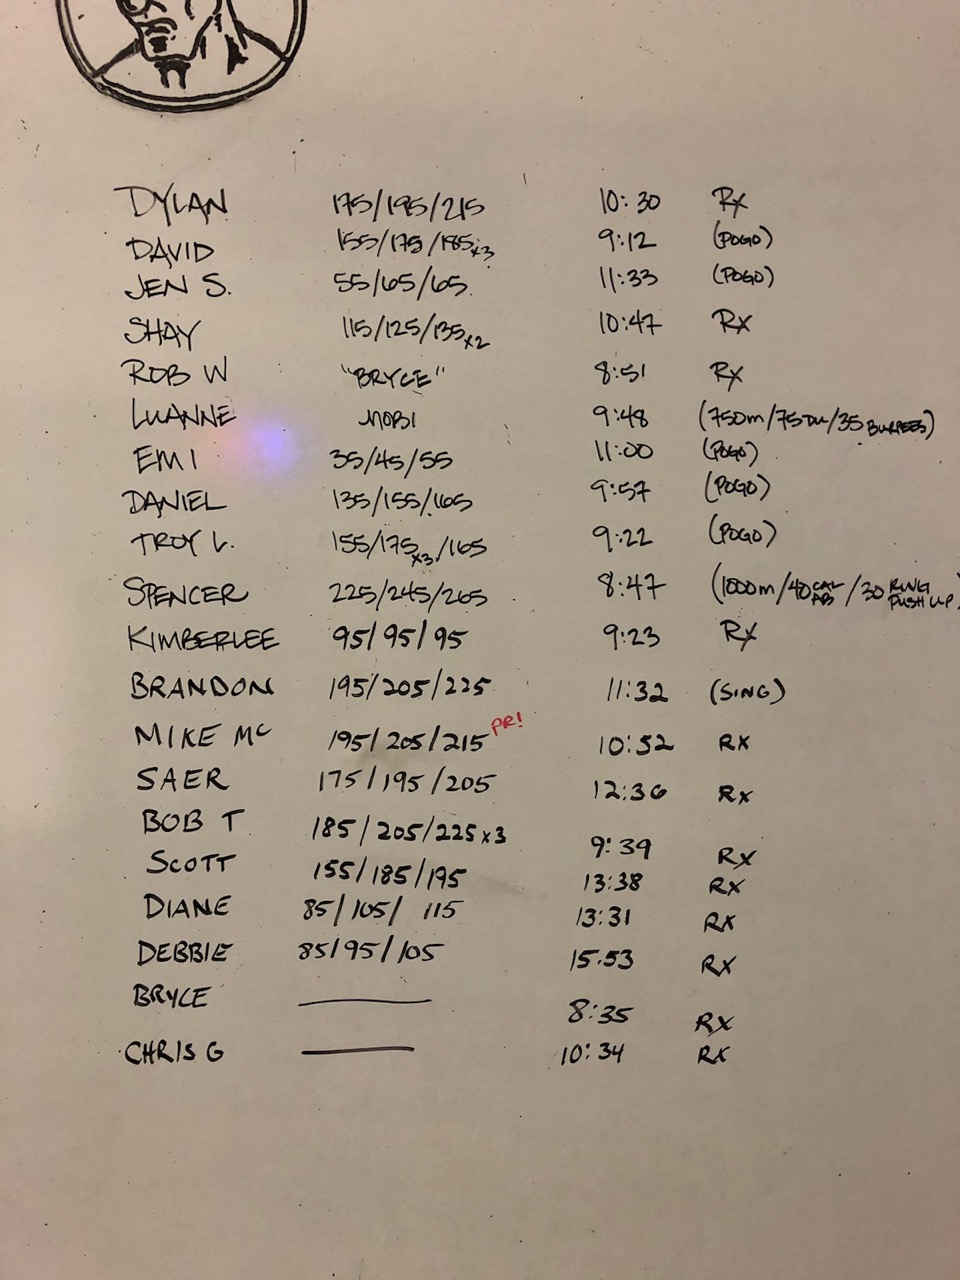 DYLAN 175/195/215 10:30 Rx
DAVID 155/175/185x3 9:12 (POGO)
JEN S. 55/65/65 11:33 (POGO)
SHAY 115/125/135x2 10:47 Rx
ROB W "BRYCE" 8:51 Rx
LUANNE MOBI 9:48 (750m/75DU/35 BURPEES)
EMI 35/45/55 11:00 (POGO)
DANIEL 135/155/165 9:57 (POGO)
TROY L. 155/175x3/165 9:22 (POGO)
SPENCER 225/245/265 8:47 (1000m/40 CAL AB/30 RING PUSH UP)
KIMBERLEE 95/95/95 9:23 Rx
BRANDON 195/205/225 11:32 (SING)
MIKE MC 195/205/215 PR! 10:52 RX
SAER 175/195/205 12:36 Rx
BOB T 185/205/225x3 9:39 RX
SCOTT 155/185/195 13:38 RX
DIANE 85/105/115 13:31 RX
DEBBIE 85/95/105 15.53 RX
BRYCE — 8:35 RX
CHRIS G — 10:34 RX